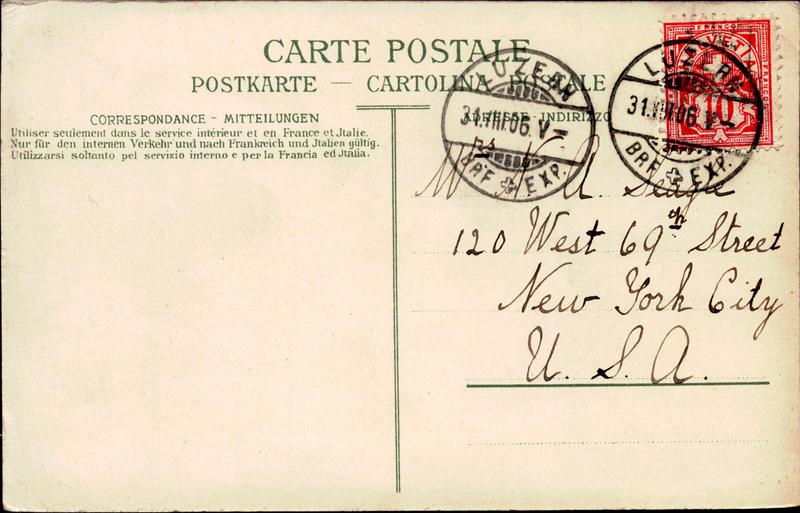 CARTE POSTALE
POSTKARTE — CARTOLINA POSTALE
CORRESPONDANCE - MITTEILUNGEN
Utiliser seulement dans le service intérieur et en France et Jtalie.
Nur für den internen Verkehr und nach Frankreich und Jtalien gültig.
Utilizzarsi soltanto pel servizio interno e per la Francia ed Jtalia.
ADRESSE-INDIRIZZO
LUZERN
31.VIII.06.V
BRF. EXP.
LUZERN
31.VIII.06.V
BRF. EXP.
FRANCO
10
A. Seagle
120 West 69th Street
New York City
U. S. A.